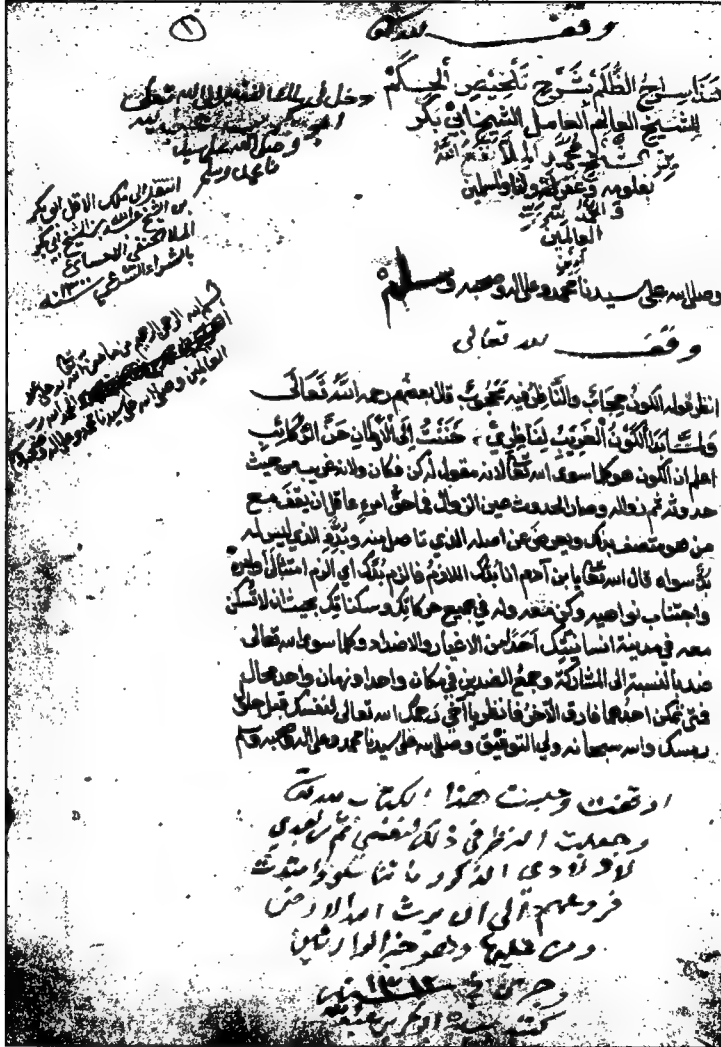 وقف لله تعالى
هذا سراج الظلم شرح تلخيص الحكم
للشيخ العالم العامل الشيخ ابي بكر
بن الشيخ محمد الملا نفع الله
بعلومه وغفر له ولنا والمسلمين
والحمد لله رب
العالمين
امين
وصلى الله على سيدنا محمد وعلى اله وصحبه وسلم
دخل في ملك الفقير الى الله تعالى
وصلى الله على سيدنا
محمد وسلم
انتقل الى ملك الاقل ابو بكر
بن الشيخ عبدالله بن الشيخ ابي بكر
الملا الحنفي الاحسائي
بالشراء الشرعي سنة ١٣٠٠
بسم الله الرحمن الرحيم
الحمد لله رب
العالمين وصلى الله على سيدنا محمد وعلى اله وصحبه
وقف لله تعالى
انظر قوله الكون حجاب والناظر فيه محجوب قال بعضهم رحمه الله تعالى
ولما بدا الكون الغريب لناظري حننت الى الاوطان حن الركائب
اعلم ان الكون هو كلما سوى الله تعالى لانه مقول له كن فكان ولانه غريب من حيث
حدوثه ثم زواله وصار الحدوث عين الزوال في حق امرء عاقل ان يقف مع
من هو متصف بذلك ويعرض عن اصله الذي تاصل منه وبده الذي ليس له
بد سواه قال الله تعالى يا ابن آدم انا بدك اللازم فالزم بدك اي الزم امتثال اوامره
واجتناب نواهيه وكن معه وله في جميع حركاتك وسكناتك بحيث ان لا تسكن
معه في مدينة انسانيتك احدا من الاغيار والاضداد وكلما سوى الله تعالى
ضد بالنسبة الى المشاركة وجمع الضدين في مكان واحد وزمان واحد محال
فمتى تمكن احدهما فارق الآخر فانظر يا اخي رحمك الله تعالى لنفسك قبل حلول
رمسك والله سبحانه ولي التوفيق وصلى الله على سيدنا محمد وعلى اله وصحبه وسلم
اوقفت وحبست هذا الكتاب لله تعالى
وجعلت النظر في ذلك لنفسي ثم من بعدي
لاولادي الذكور ما تناسلوا وامتدت
فروعهم الى ان يرث الله الارض
ومن عليها وهو خير الوارثين
وحرر في سنة ١٣١٢
كتبه